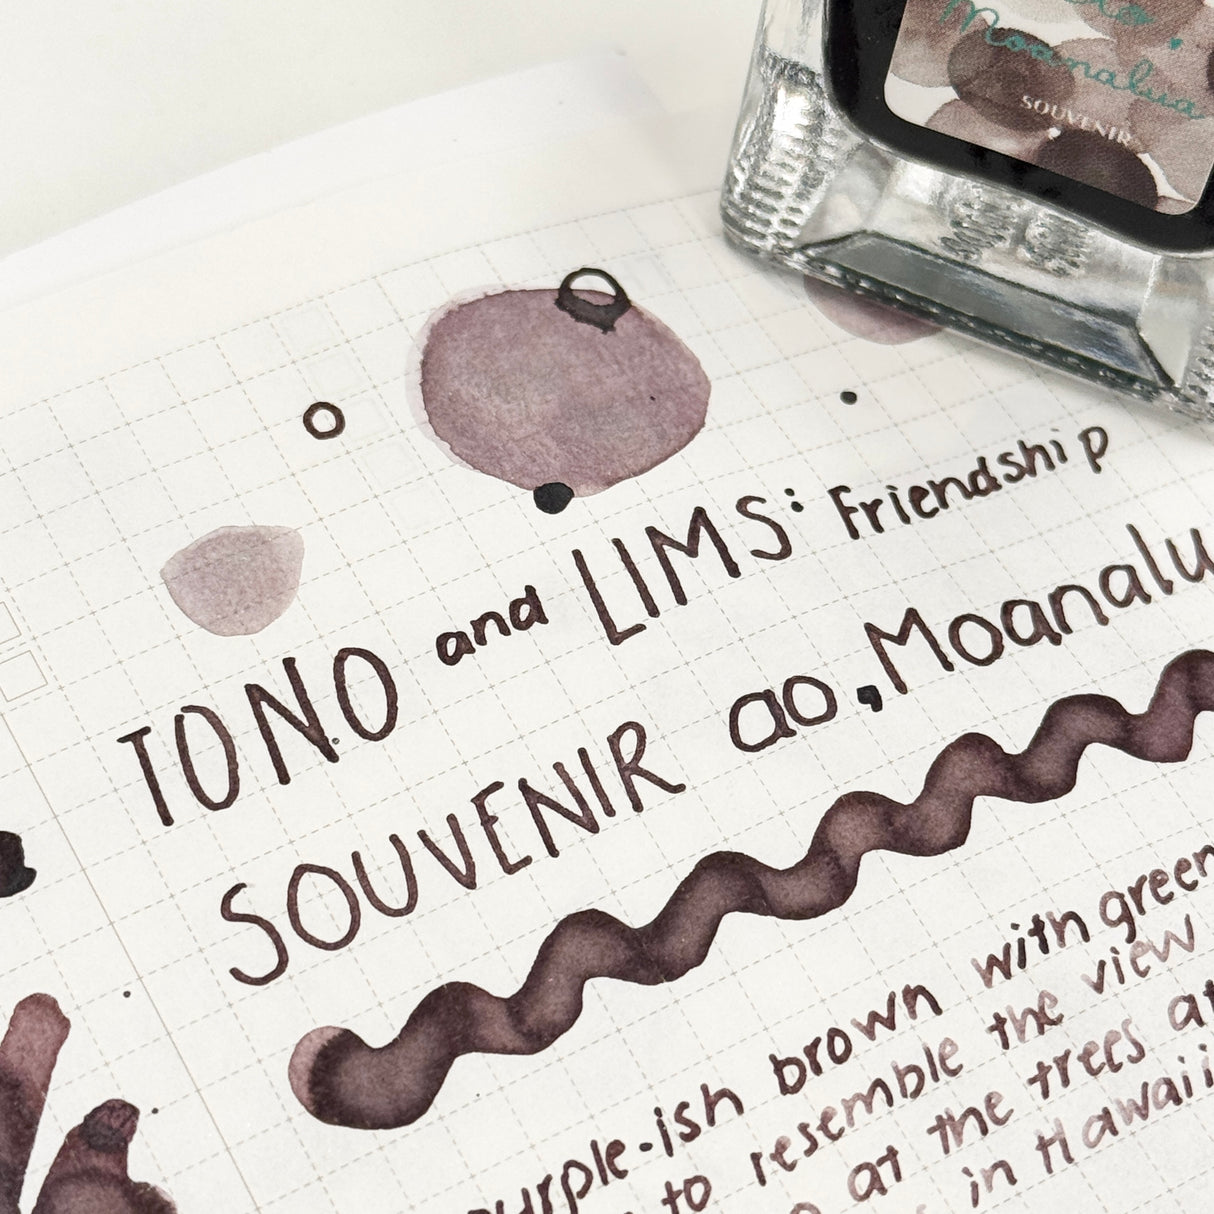 Moanalua
SOUVENIR
TONO and LIMS: Friendship
SOUVENIR ao, Moanalu
purple-ish brown with green
to resemble the view
at the trees at
in Hawaii